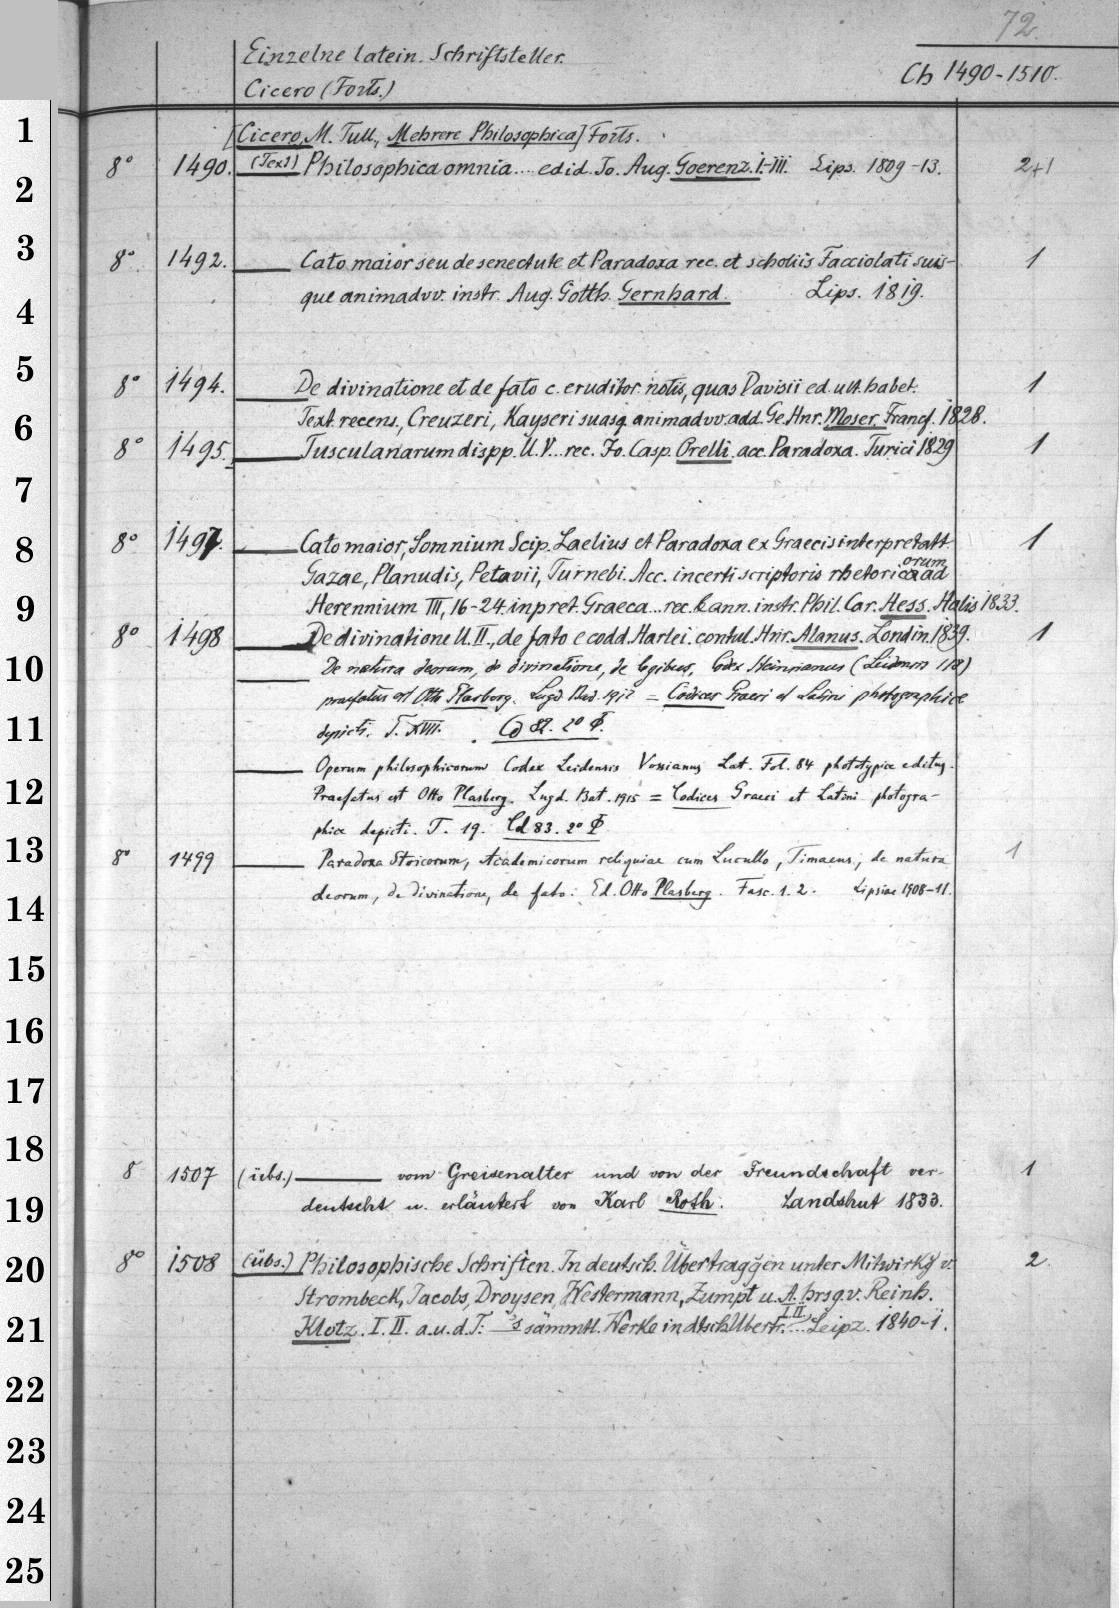 72.
Einzelne latein. Schriftsteller.
Cicero (Forts.)
Ch 1490-1510.
[Cicero, M. Tull., Mehrere Philosophica] Forts.
8° 1490. (Text) Philosophica omnia... edid. Jo. Aug. Goerenz. I-III. Lips. 1809-13. 2+1
8° 1492. Cato maior seu de senectute et Paradoxa rec. et scholiis Facciolati suis- 1
que animadvv. instr. Aug. Gotth. Gernhard. Lips. 1819.
8° 1494. De divinatione et de fato c. eruditor. notis, quas Davisii ed. ult. habet. 1
Text. recens., Creuzeri, Kayseri suasq. animadvv. add. Ge. Hnr. Moser. Francf. 1828.
8° 1495. Tusculanarum dispp. ll. V... rec. Jo. Casp. Orelli. acc. Paradoxa. Turici 1829 1
8° 1497. Cato maior, Somnium Scip. Laelius et Paradoxa ex Graecis interpretatt. 1
orum
Gazae, Planudis, Petavii, Turnebi. Acc. incerti scriptoris rhetoric ad
Herennium III, 16-24. inpret. Graeca... rec. & ann. instr. Phil. Car. Hess. Halis 1833.
8° 1498 De divinatione ll. II., de fato e codd. Harlei. contul. Hnr. Alanus. Londin. 1839. 1
De natura deorum, de divinatione, de legibus, Codex Heinsianus (Leidensis 118)
praefatus est Otto Plasberg. Lugd. Bat. 1912 = Codices Graeci et Latini photographice
depicti. T. XVII. Cd 82. 2° Φ.
Operum philosophicorum Codex Leidensis Vossianus Lat. Fol. 84 phototypice editus.
Praefatus est Otto Plasberg. Lugd. Bat. 1915 = Codices Graeci et Latini photogra-
phice depicti. T. 19. Cd 83. 2° Φ
8° 1499 Paradoxa Stoicorum, Academicorum reliquiae cum Lucullo, Timaeus, de natura 1
deorum, de divinatione, de fato. Ed. Otto Plasberg. Fasc. 1. 2. Lipsiae 1908-11.
8 1507 (übs.) vom Greisenalter und von der Freundschaft ver- 1
deutscht u. erläutert von Karl Roth. Landshut 1833.
8° 1508 (übs.) Philosophische Schriften. In deutsch. Übertraggen unter Mitwirkg v. 2
Strombeck, Jacobs, Droysen, Westermann, Zumpt u. A. hrsg. v. Reinh.
I. II.
Klotz. I. II. a. u. d. T. 's sämmtl. Werke in dtsch Übertr.... Leipz. 1840-1.
1
2
3
4
5
6
7
8
9
10
11
12
13
14
15
16
17
18
19
20
21
22
23
24
25